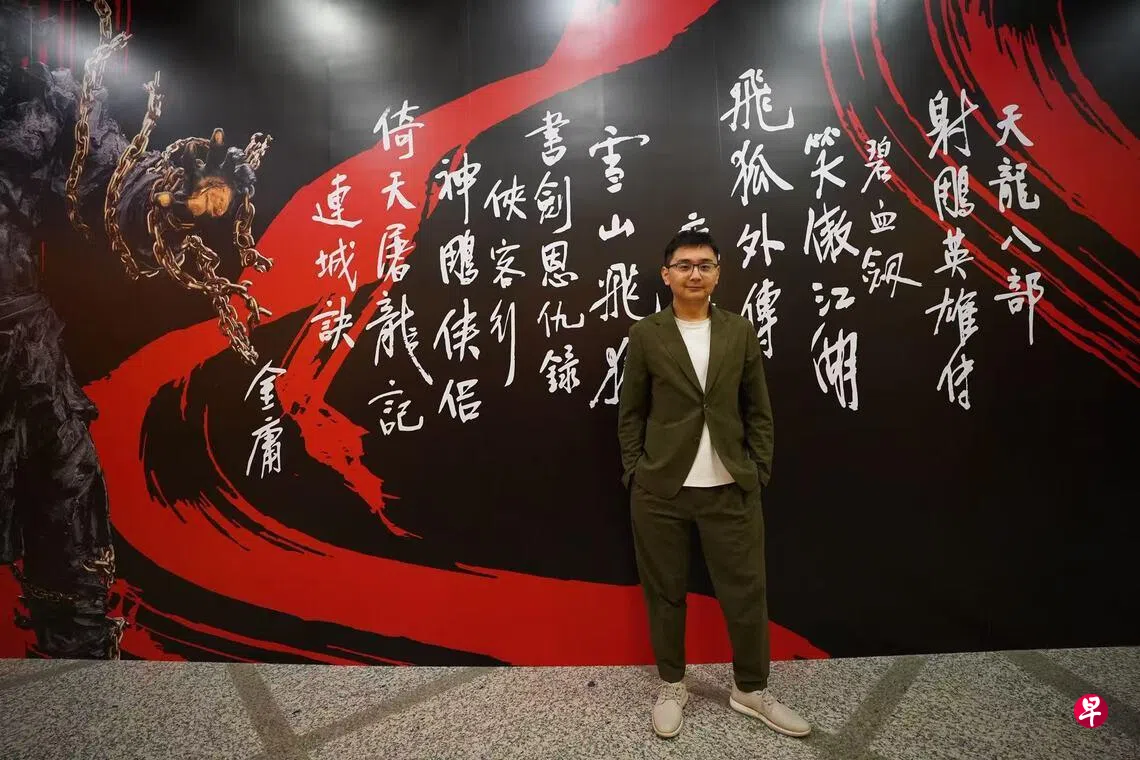 天龍八部
射鵰英雄傳
碧血劍
笑傲江湖
飛狐外傳
雪山飛
書劍恩仇錄
俠客行
神鵰俠侶
倚天屠龍記
連城訣
金庸
早